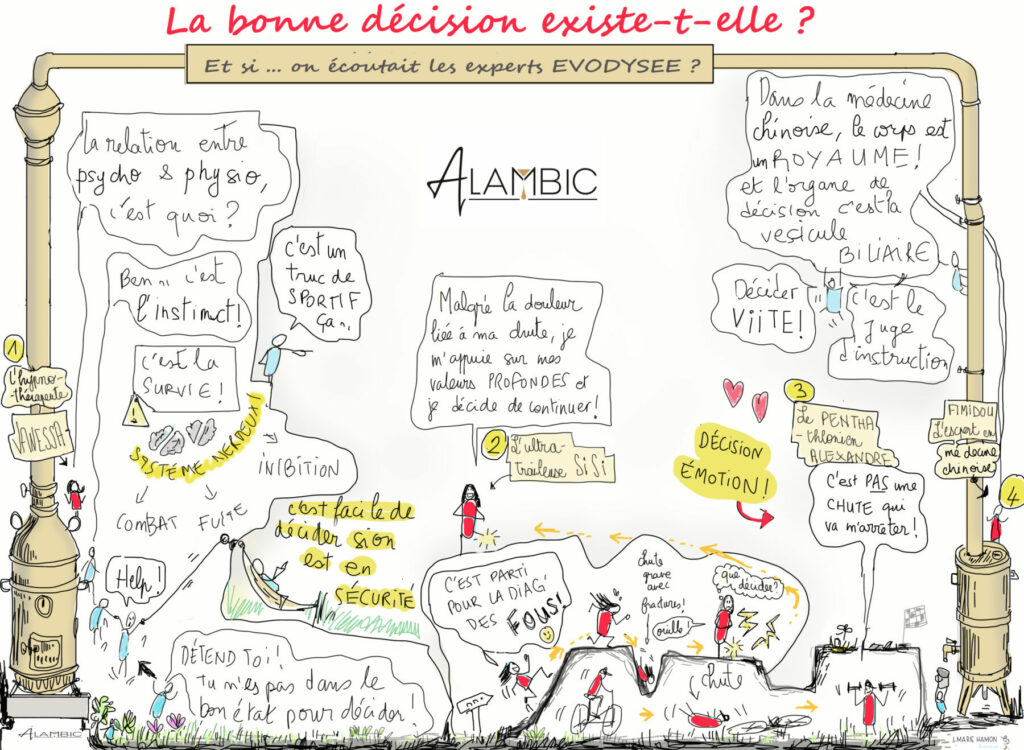 La bonne décision existe-t-elle ?
Et si ... on écoutait les experts EVODYSEE ?
ALAMBIC
La relation entre
psycho & physio,
c'est quoi ?
Ben... c'est
l'instinct!
c'est un
truc de
SPORTIF
ça...
c'est la
SURVIE !
!
SYSTÈME NERVEUX!
INIBITION
COMBAT
FUITE
1
L'hypno-
thérapeute
VANESSA
Help!
c'est facile de
décider si on
est en
SÉCURITÉ
DÉTEND TOI!
Tu n'es pas dans le
bon état pour décider!
Malgré la douleur
liée à ma chute, je
m'appuie sur mes
valeurs PROFONDES et
je décide de continuer!
2
L'ultra
traileuse SISI
C'EST PARTI
POUR LA DIAG'
DES FOUS!
chute
grave
avec
fractures!
ouille!
que
décider?
chute
DÉCISION
ÉMOTION!
3
Le PENTHA
thlonien
ALEXANDRE
C'EST PAS une
CHUTE qui
va m'arrêter!
Dans la médecine
chinoise, le corps est
un ROYAUME!
et l'organe de
décision c'est la
vésicule
BILIAIRE
Décider
ViiTE!
c'est le
Juge
d'instruction
FIMIDOU
L'expert en
médecine
chinoise
4
ALAMBIC
J.MARIE HAMON